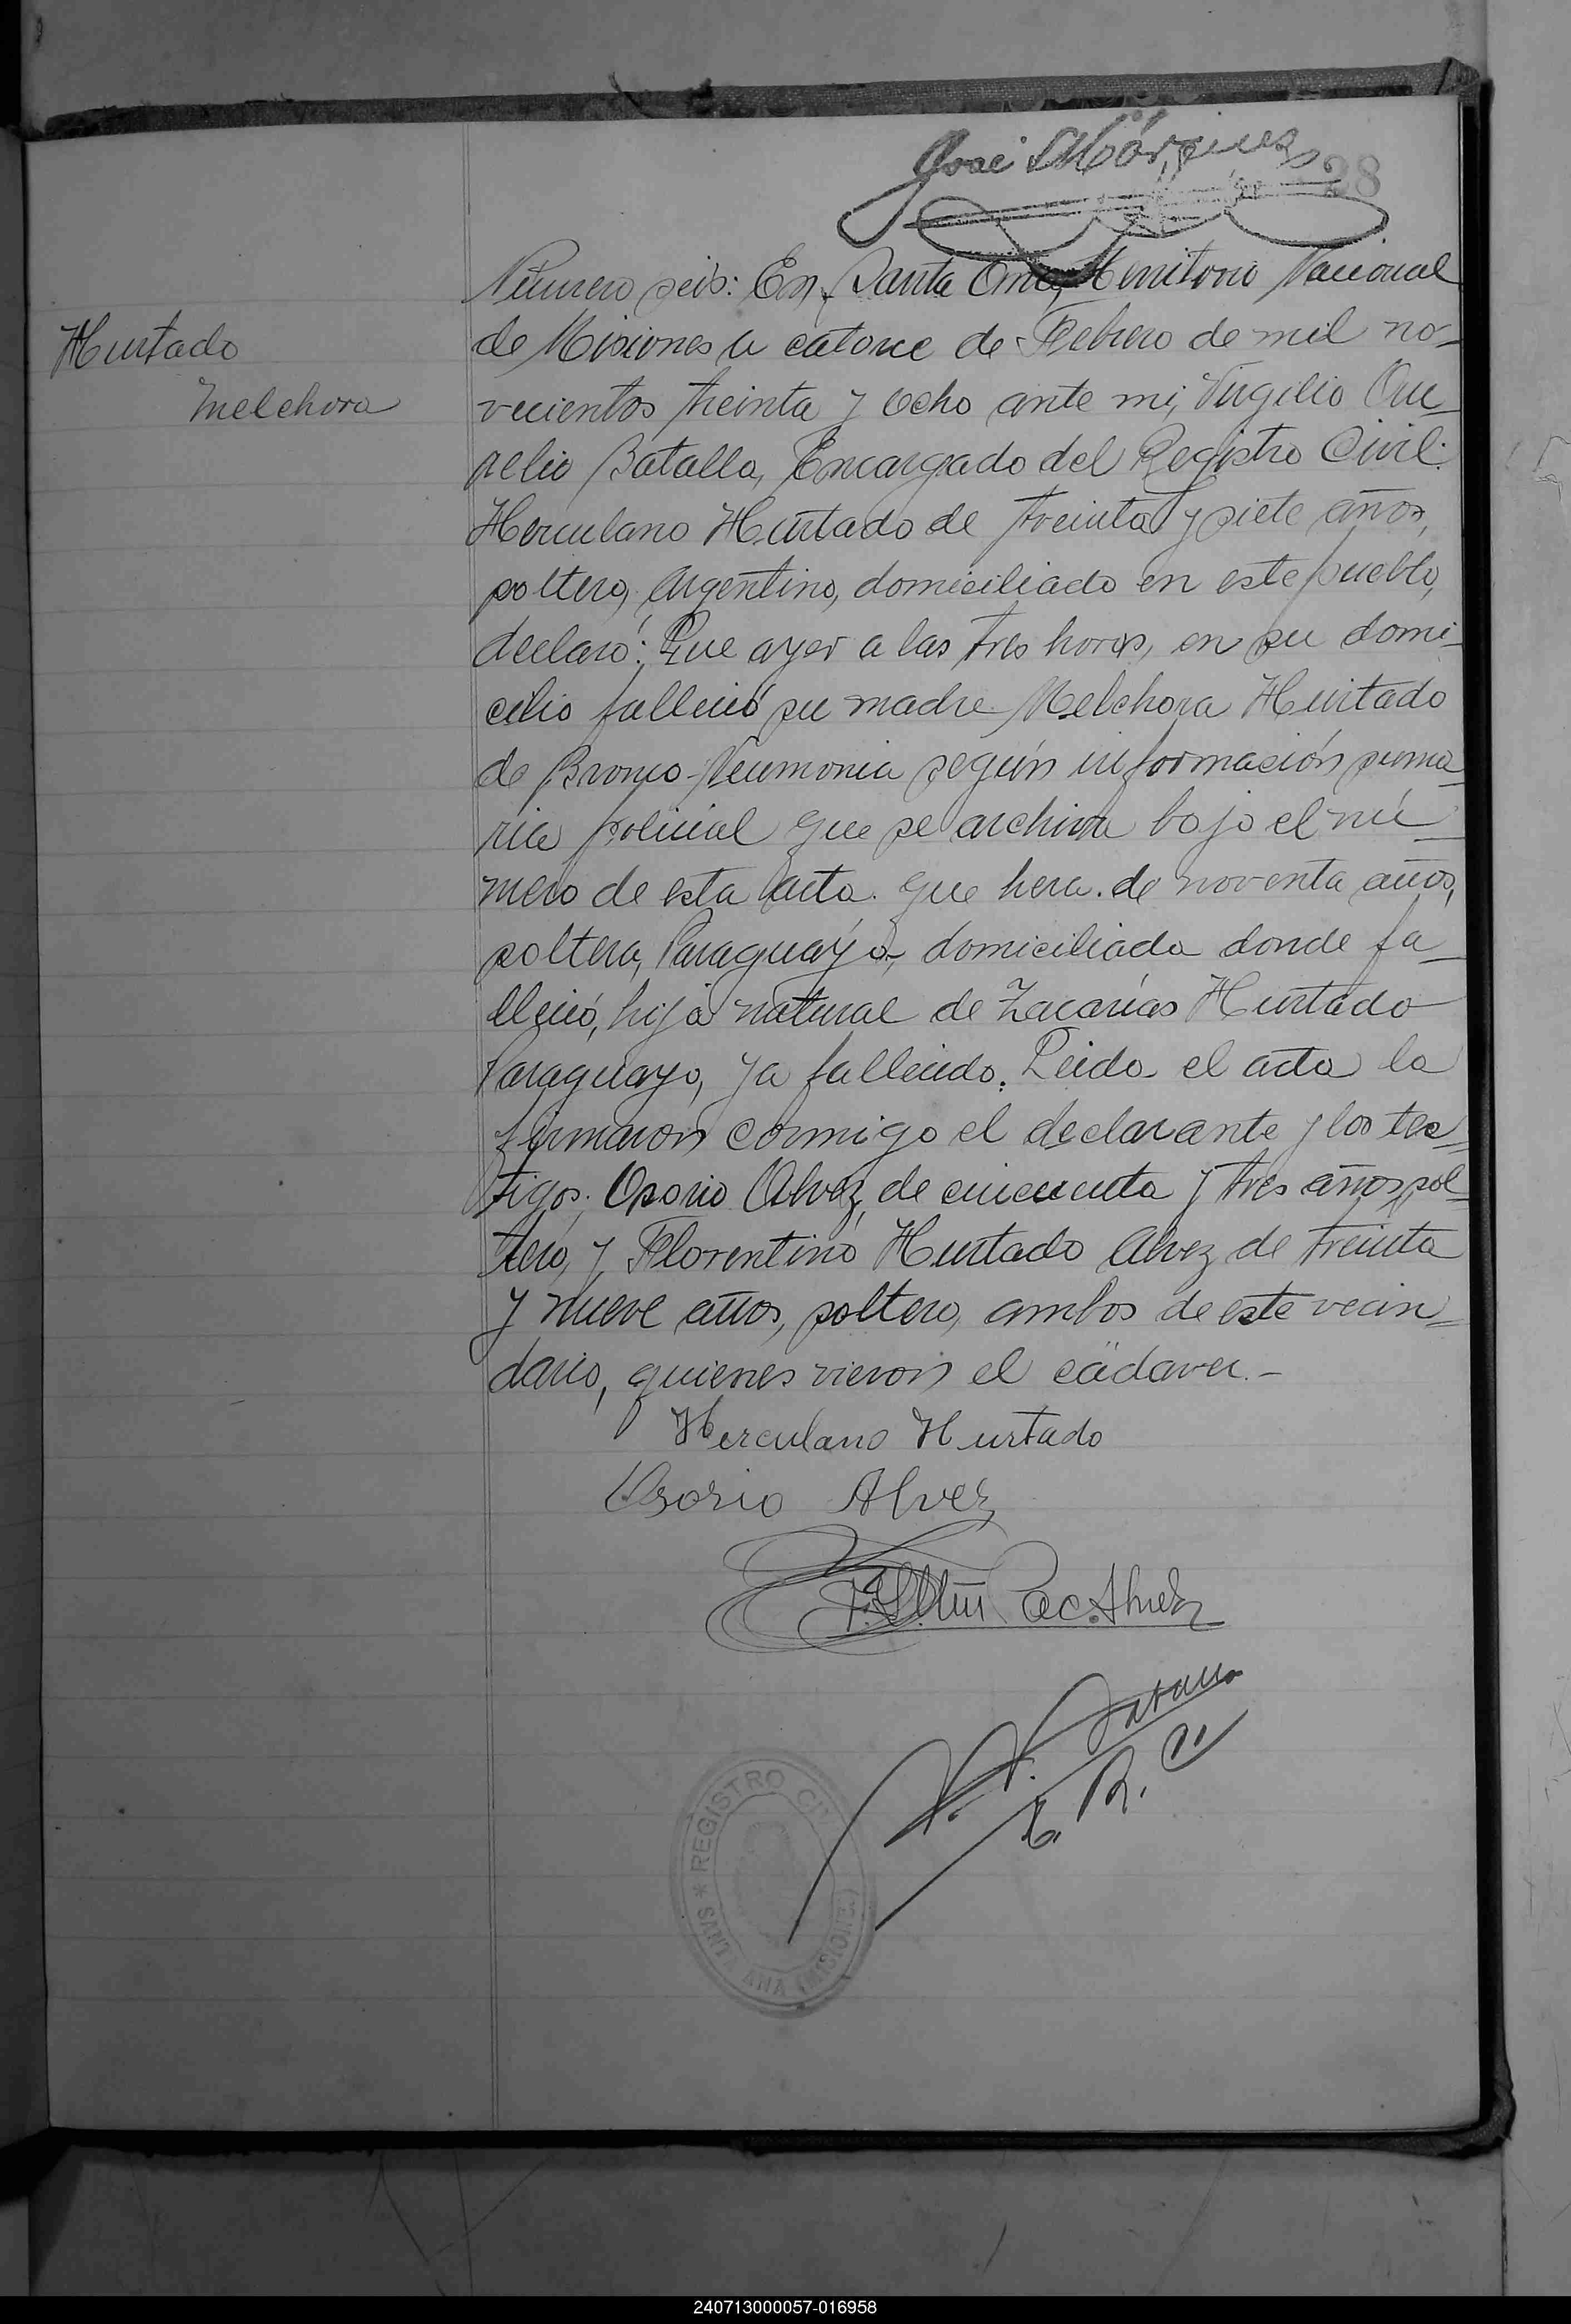 José Márquez
28
Hurtado
Melchora
Número seis: En Santa Ana, Territorio Nacional
de Misiones a catorce de Febrero de mil no-
vecientos treinta y ocho ante mi, Virgilio Au-
relio Batalla, Encargado del Registro Civil:
Herculano Hurtado de treinta y siete años,
soltero, Argentino, domiciliado en este pueblo,
declaró: Que ayer a las tres horas, en su domi-
cilio falleció su madre Melchora Hurtado
de Bronco-Neumonia según información suma-
ria policial que se archiva bajo el nú-
mero de esta acta. que hera de noventa años,
soltera, Paraguaya, domiciliada donde fa-
lleció, hija natural de Zacarías Hurtado
Paraguayo, ya fallecido. Leida el acta la
firmaron conmigo el declarante y los tes-
tigos: Osorio Alvez, de cincuenta y tres años, sol-
tero, y Florentino Hurtado Alvez de treinta
y nueve años, soltero, ambos de este vecin-
dario, quienes vieron el cádaver.-
Herculano Hurtado
Osorio Alvez
V. A. Batalla
E. R. C.
REGISTRO CIVIL
* SANTA ANA (MISIONES)
240713000057-016958